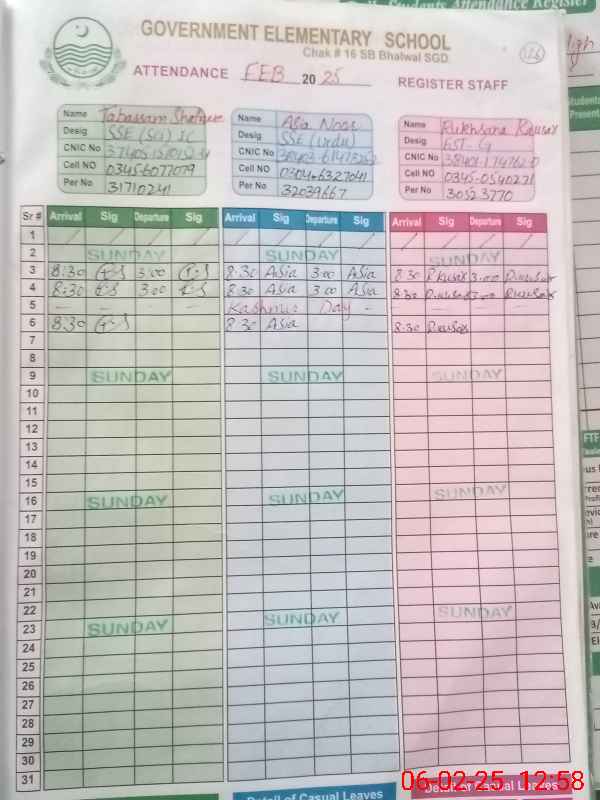 Students Attendance Register
GOVERNMENT ELEMENTARY SCHOOL
Chak # 16 SB Bhalwal SGD.
ATTENDANCE FEB 2025 REGISTER STAFF
Name Tabassam Name Asia Noor Name Rukhsana Kausar
Desig SSE (Sci) Desig SSE (Urdu) Desig EST-G
CNIC No CNIC No CNIC No
Cell NO 0345-6077079 Cell NO Cell NO 0345-0540271
Per No 31710241 Per No 32039667 Per No 30523770
Students Present
Sr # Arrival Sig Departure Sig Arrival Sig Departure Sig Arrival Sig Departure Sig
1 / / / / / / / / / / / /
2 SUNDAY SUNDAY SUNDAY
3 8:30 3:00 8:30 Asia 3:00 Asia 8:30 R.kusar 3:00 R.kusar
4 8:30 3:00 8:30 Asia 3:00 Asia 8:30 R.kusar 3:00 R.kusar
5 - - - - Kashmir Day -
6 8:30 8:30 Asia 8:30 R.kusar
7
8
9 SUNDAY SUNDAY SUNDAY
10
11
12
13
14
15
16 SUNDAY SUNDAY SUNDAY
17
18
19
20
21
22
23 SUNDAY SUNDAY SUNDAY
24
25
26
27
28
29
30
31
Detail of Casual Leaves Detail of Casual Leaves
06-02-25 12:58